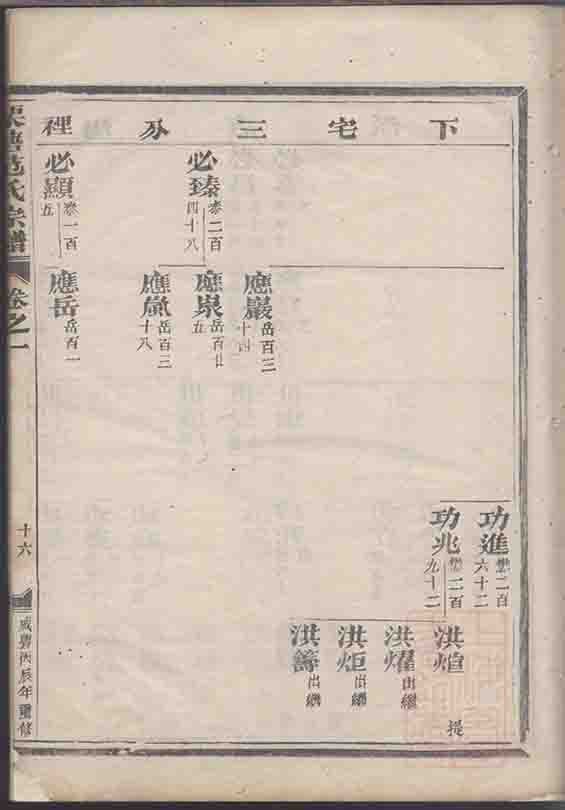 下宅三分裡
功進 懋二百六十二
功兆 懋二百九十二
洪煊 提
洪燿 出繼
洪炬 出繼
洪籌 出繼
應巖 岳百三十四
應泉 岳百廿五
應嵐 岳百三十八
應岳 岳百一
必臻 泰二百四十八
必顯 泰一百五
范氏宗譜
卷之一
十六
咸豐丙辰年重修